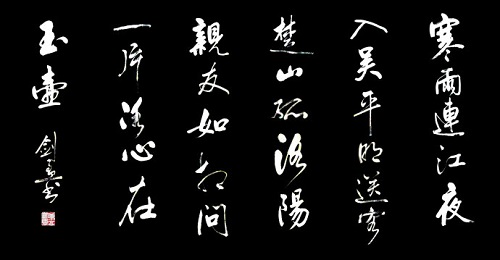 寒雨連江夜
入吴平明送客
楚山孤洛陽
親友如相問
一片冰心在
玉壺
剑书